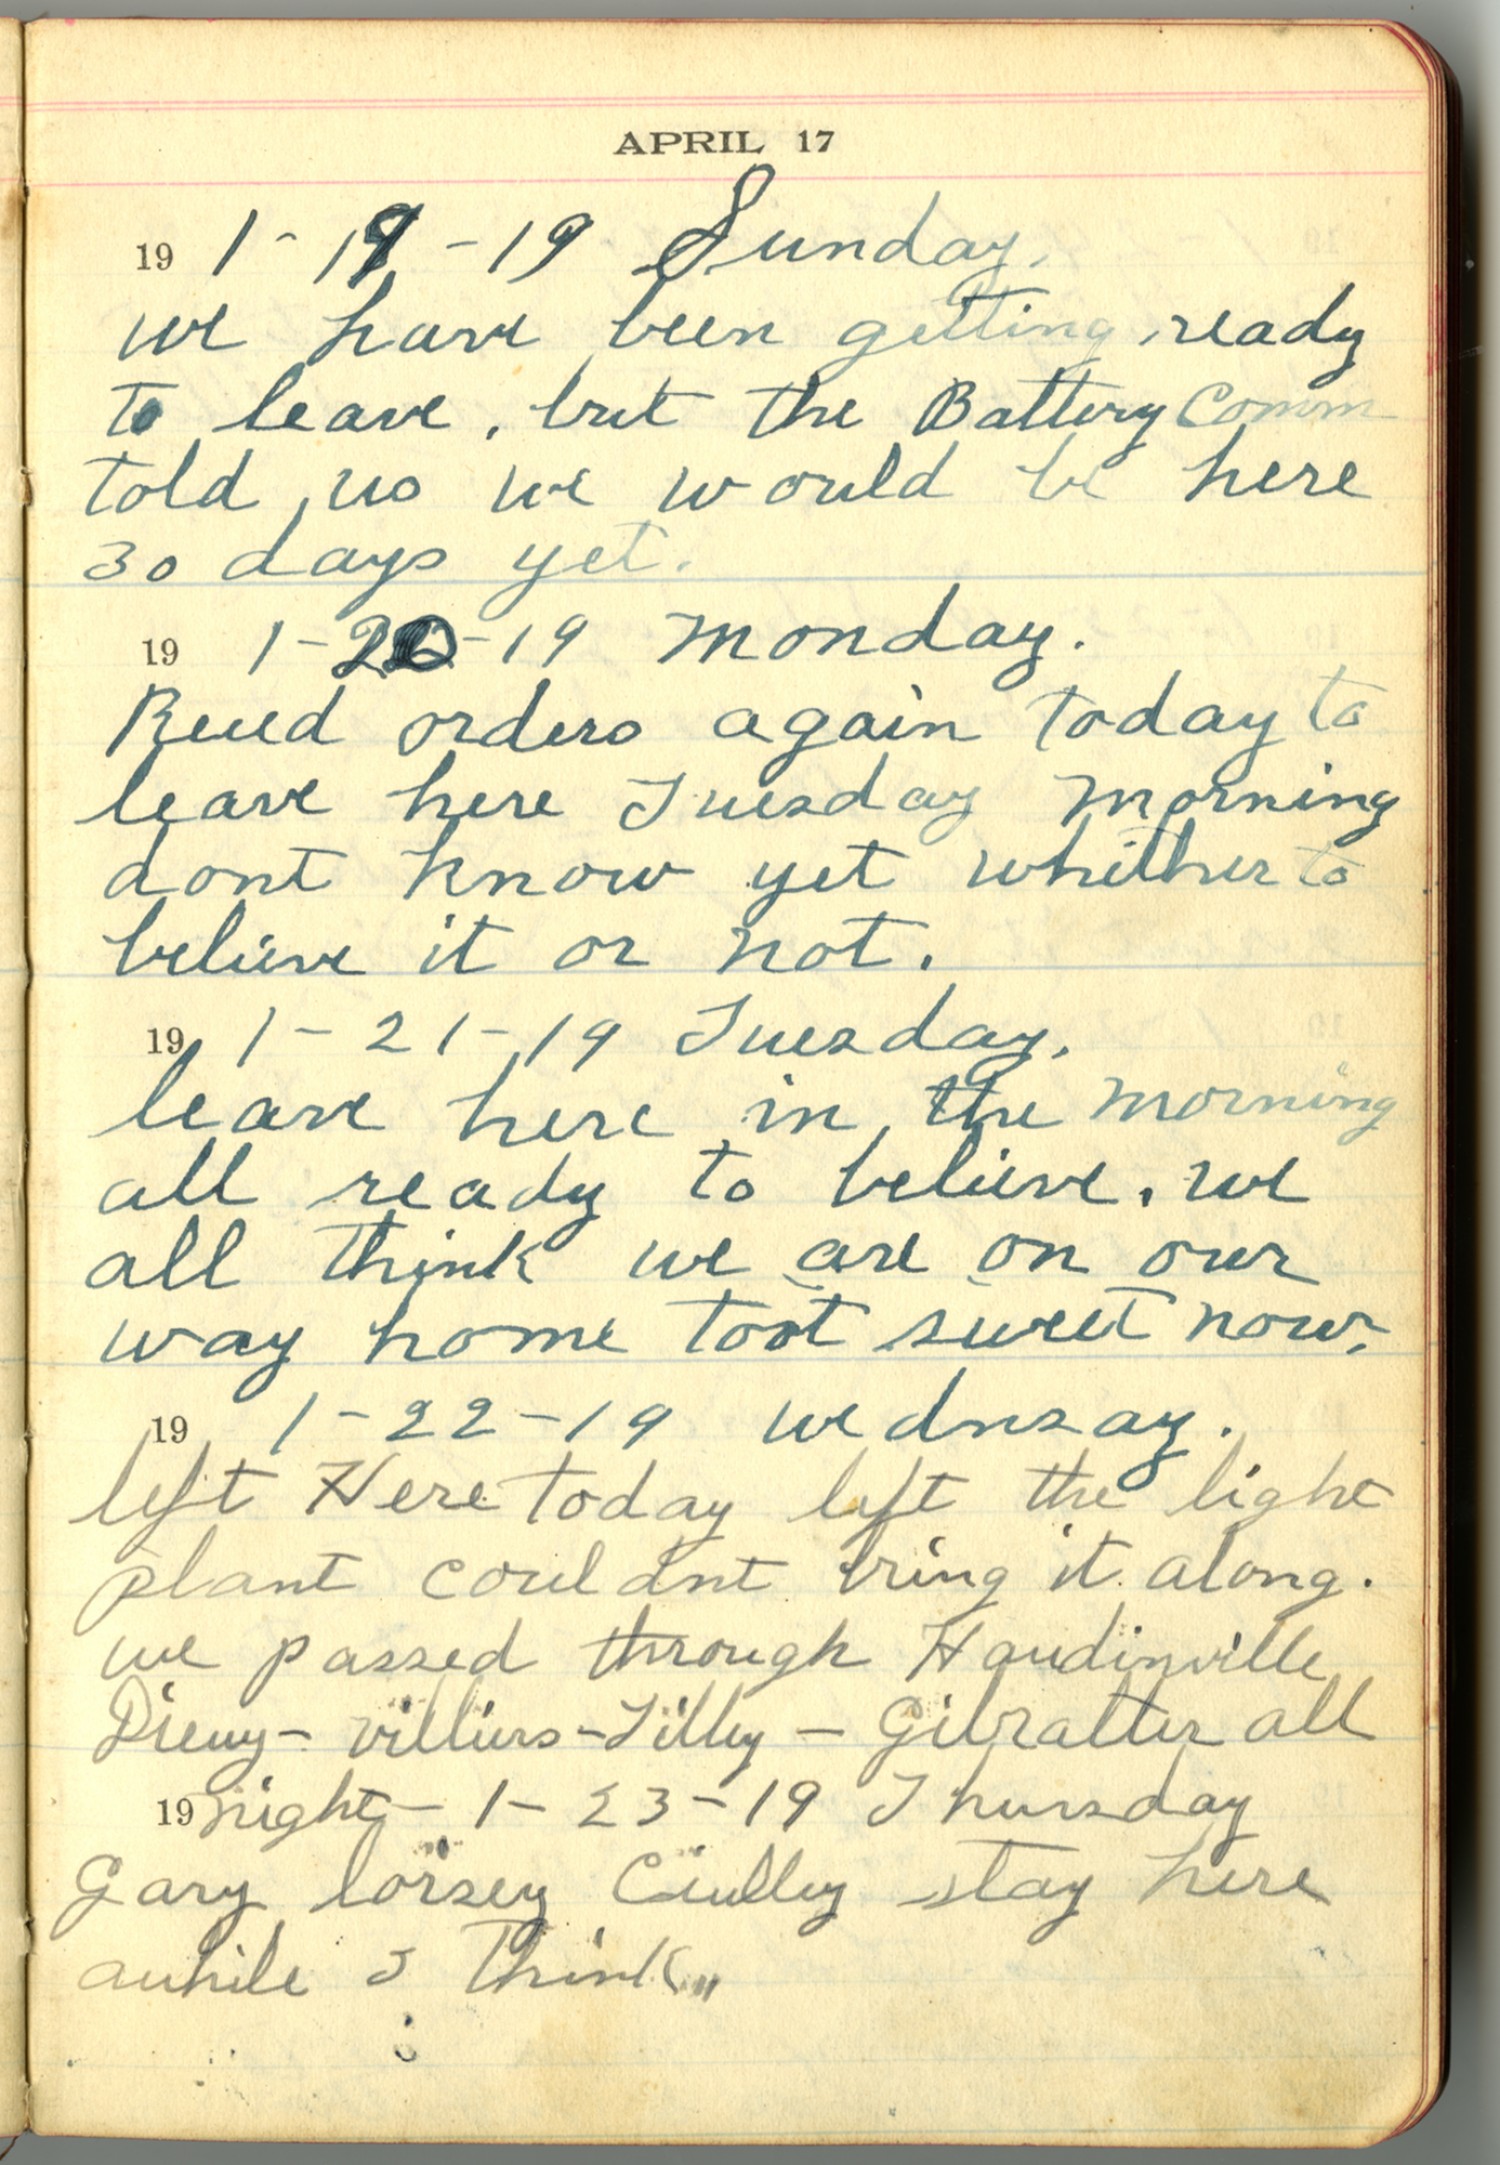 APRIL 17
19 1-19-19 Sunday.
we have been getting ready
to leave, but the Battery Comm
told us we would be here
30 days yet.
19 1-20-19 Monday.
Recd orders again today to
leave here Tuesday morning
dont know yet whether to
believe it or not.
19 1-21-19 Tuesday.
leave here in the morning
all ready to believe. we
all think we are on our
way home toot sweet now.
19 1-22-19 wednsay.
left Here today left the light
plant couldnt bring it along.
we passed through Haudinville
Dieuy - villiers - Tilly - Gibralter all
19 night - 1-23-19 Thursday
Gary lorsey stay here
awhile I think